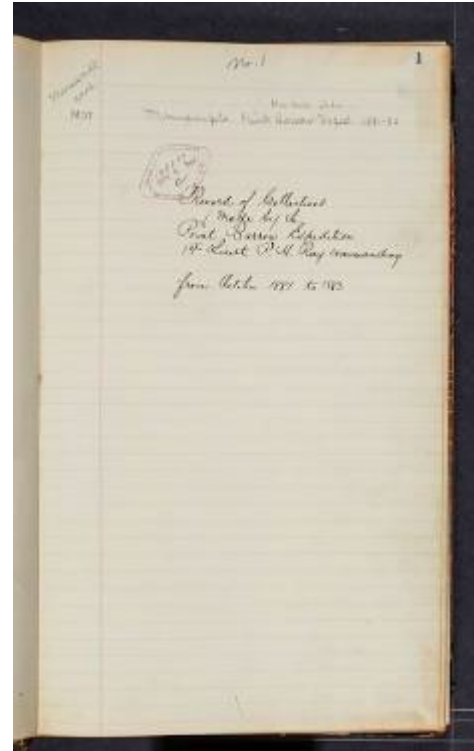 No. 1
1
Manuscript
Point Barrow Exped. 1881-83
Record of Collections
Made by the
Point Barrow Expedition
1st Lieut P. H. Ray commanding
from October 1881 to 1883